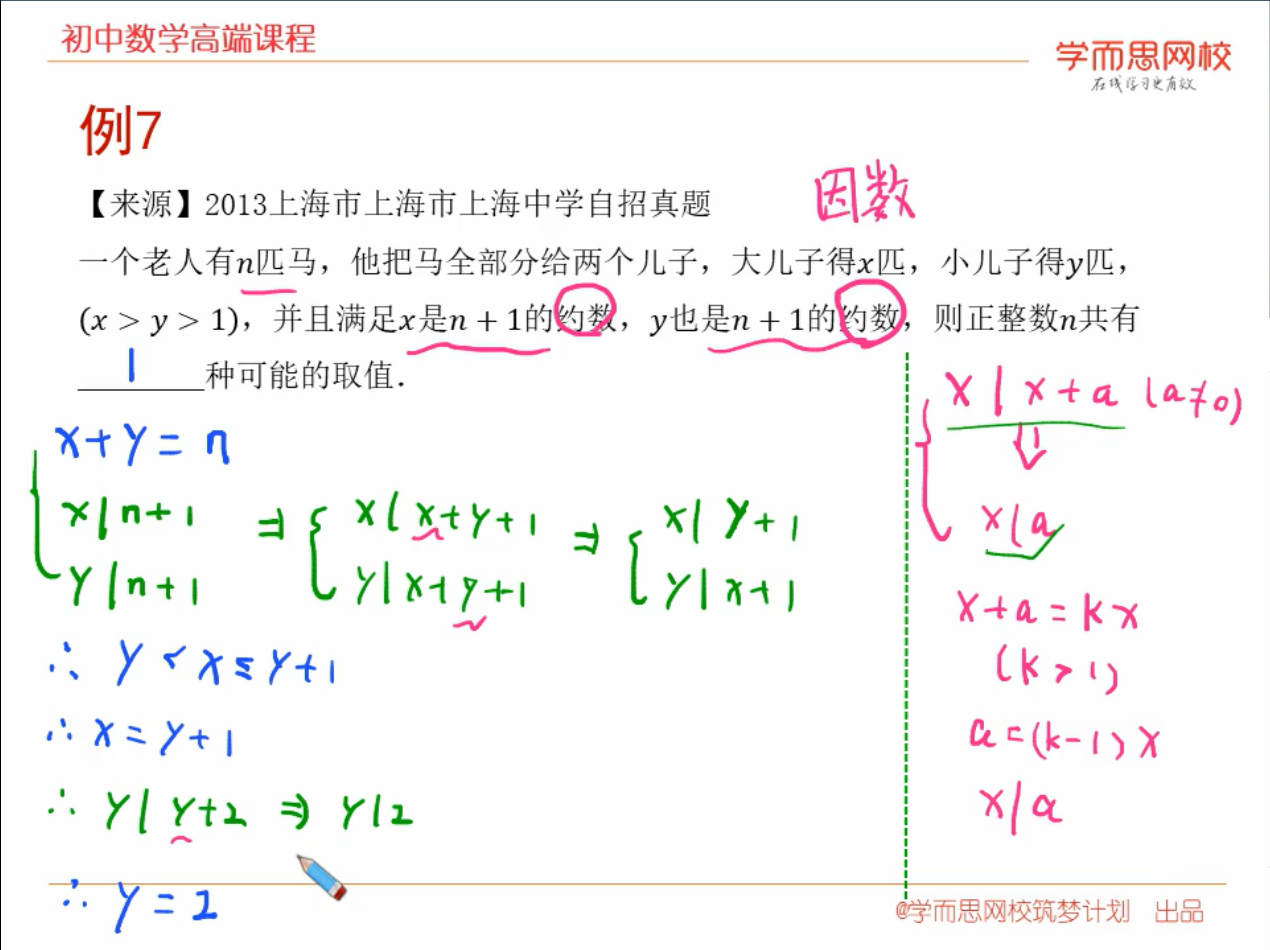 初中数学高端课程
学而思网校
在线学习更有效
例7
【来源】2013上海市上海市上海中学自招真题
因数
一个老人有n匹马，他把马全部分给两个儿子，大儿子得x匹，小儿子得y匹，
(x > y > 1)，并且满足x是n + 1的约数，y也是n + 1的约数，则正整数n共有
1种可能的取值．
x+y=n
x|n+1 ⇒ x|x+y+1 ⇒ x|y+1
y|n+1 y|x+y+1 y|x+1
∴ y<x≤y+1
∴ x=y+1
∴ y|y+2 ⇒ y|2
∴ y=2
x|x+a (a≠0)
⇓
x|a
x+a=kx
(k>1)
a=(k-1)x
x|a
@学而思网校筑梦计划 出品